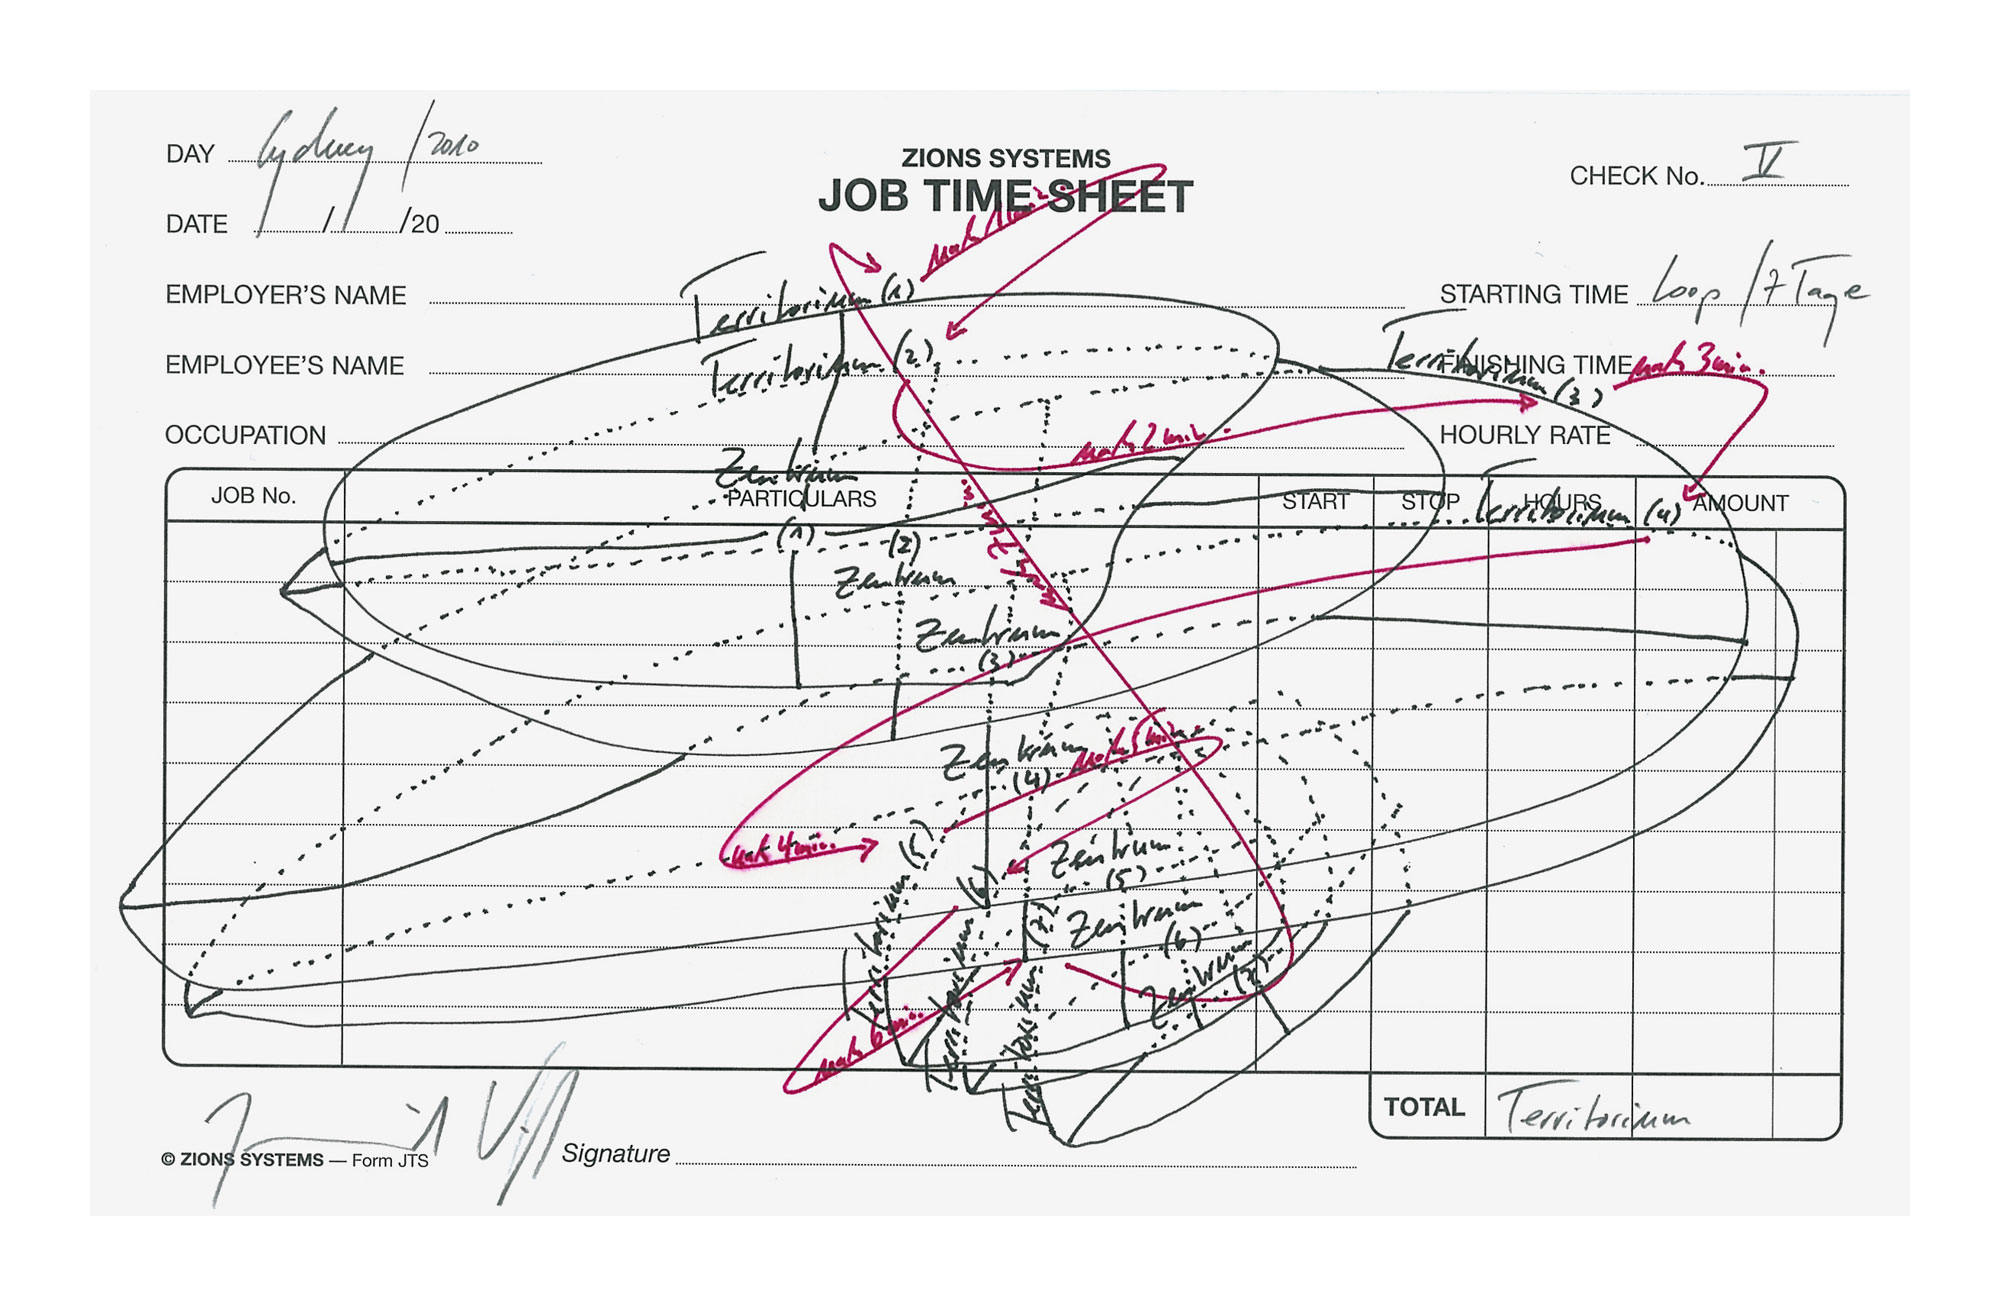 DAY Sydney / 2010
ZIONS SYSTEMS
JOB TIME SHEET
CHECK No. V
DATE / / /20
nach 1 min.
EMPLOYER'S NAME
Territorium (1)
STARTING TIME Loop / 7 Tage
EMPLOYEE'S NAME
Territorium (2)
FINISHING TIME
Territorium (3)
nach 3 min.
OCCUPATION
nach 2 min.
HOURLY RATE
Zentrum
JOB No. PARTICULARS START STOP HOURS AMOUNT
Territorium (4)
(1)
(2)
Zentrum
nach 7 min.
Zentrum
(3)
Zentrum
(4)
nach 5 min.
nach 4 min.
Zentrum
(5)
Territorium (5)
Territorium (6)
Territorium (7)
Zentrum
(6)
Zentrum
(7)
nach 6 min.
TOTAL Territorium
© ZIONS SYSTEMS — Form JTS
Signature